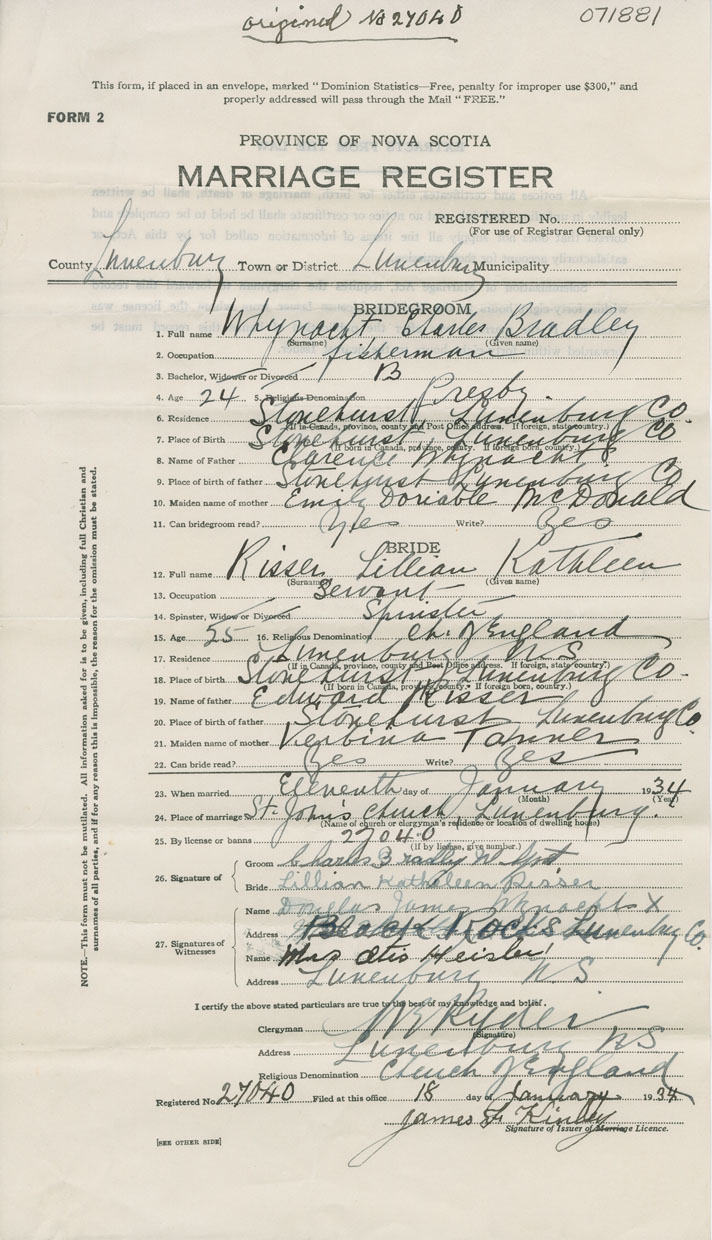 original No 27040
071881
This form, if placed in an envelope, marked "Dominion Statistics—Free, penalty for improper use $300," and
properly addressed will pass through the Mail "FREE."
FORM 2
PROVINCE OF NOVA SCOTIA
MARRIAGE REGISTER
REGISTERED No.
(For use of Registrar General only)
County Lunenburg Town or District Lunenburg Municipality
BRIDEGROOM
1. Full name Whynacht Charles Bradley
(Surname) (Given name)
2. Occupation fisherman
3. Bachelor, Widower or Divorced B
4. Age 24 5. Religious Denomination Presby.
6. Residence Stonehurst, Lunenburg Co.
(If in Canada, province, county and Post Office address. If foreign, state country.)
7. Place of Birth Stonehurst, Lunenburg Co
(If born in Canada, province, county. If foreign born, country.)
8. Name of Father Clarence Whynacht
9. Place of birth of father Stonehurst Lunenburg Co
10. Maiden name of mother Emily Doriable McDonald
11. Can bridegroom read? Yes Write? Yes
BRIDE
12. Full name Risser Lillian Kathleen
(Surname) (Given name)
13. Occupation Servant
14. Spinster, Widow or Divorced Spinster
15. Age 25 16. Religious Denomination Ch. of England
17. Residence Lunenburg N S
(If in Canada, province, county and Post Office address. If foreign, state country.)
18. Place of birth Stonehurst, Lunenburg Co.
(If born in Canada, province, county. If foreign born, country.)
19. Name of father Edward Risser
20. Place of birth of father Stonehurst Lunenburg Co.
21. Maiden name of mother Verbina Tanner
22. Can bride read? Yes Write? Yes
23. When married Eleventh day of January 1934
(Month) (Year)
24. Place of marriage St. John's Church, Lunenburg.
(Name of church or clergyman's residence or location of dwelling house)
25. By license or banns 27040
(If by license, give number.)
26. Signature of
Groom Charles Bradly
Bride Lillian Kathleen Risser
27. Signatures of Witnesses
Name Douglas James Whynacht X
Address Black Rocks Lunenburg Co.
Name Mrs Otis Heisler
Address Lunenburg N S
I certify the above stated particulars are true to the best of my knowledge and belief.
Clergyman Ryder
(Signature)
Address Lunenburg N S
Religious Denomination Church of England
Registered No. 27040 Filed at this office 18 day of January 1934
James F Kinley
Signature of Issuer of Marriage Licence.
[SEE OTHER SIDE]
NOTE.—This form must not be mutilated. All information asked for is to be given, including full Christian and
surnames of all parties, and if for any reason this is impossible, the reason for the omission must be stated.